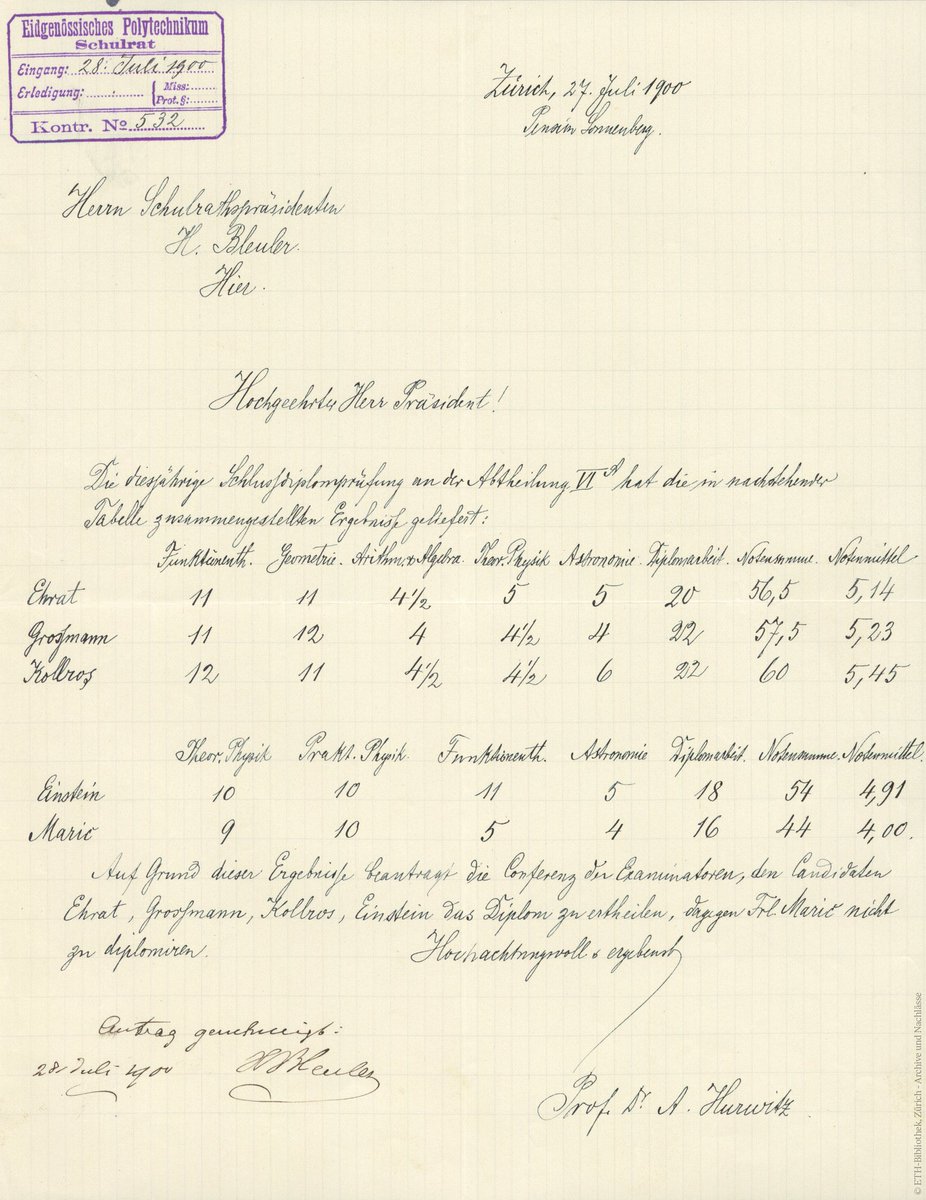 Eidgenössisches Polytechnikum
Schulrat
Eingang: 28. Juli 1900
Erledigung: Miss:
Prot. §:
Kontr. No 532
Zürich, 27. Juli 1900
Pension Sonnenberg.
Herrn Schulrathspräsidenten
H. Bleuler.
Hier.
Hochgeehrter Herr Präsident!
Die diesjährige Schlussdiplomprüfung an der Abtheilung VI A hat die in nachstehender
Tabelle zusammengestellten Ergebnisse geliefert:
Funktionenth. Geometrie. Arithm. u. Algebra. Theor. Physik Astronomie. Diplomarbeit. Notensumme. Notenmittel
Ehrat 11 11 4 1/2 5 5 20 56,5 5,14
Grossmann 11 12 4 4 1/2 4 22 57,5 5,23
Kollros 12 11 4 1/2 4 1/2 6 22 60 5,45
Theor. Physik Prakt. Physik. Funktionenth. Astronomie Diplomarbeit. Notensumme. Notenmittel.
Einstein 10 10 11 5 18 54 4,91
Maric 9 10 5 4 16 44 4,00.
Auf Grund dieser Ergebnisse beantragt die Conferenz der Examinatoren, den Candidaten
Ehrat, Grossmann, Kollros, Einstein das Diplom zu ertheilen, dagegen Frl. Maric nicht
zu diplomiren. Hochachtungsvoll & ergebenst
Antrag genehmigt:
28. Juli 1900 H Bleuler
Prof. Dr. A. Hurwitz.
© ETH-Bibliothek, Zürich - Archive und Nachlässe